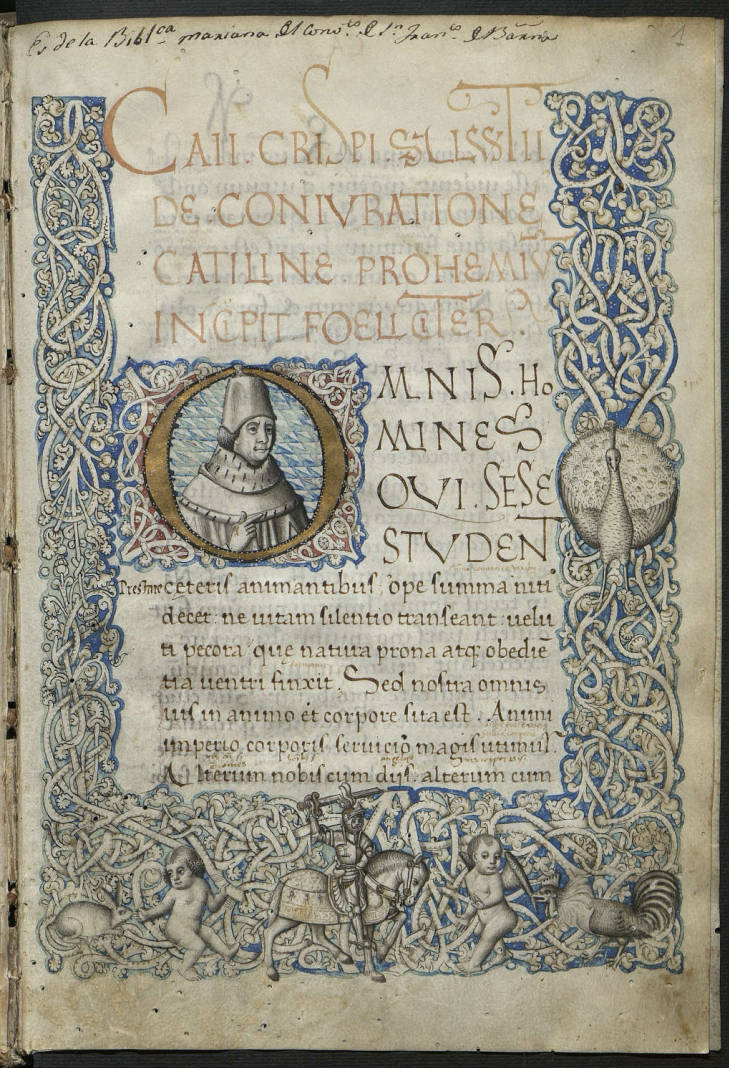 Es de la Bibl.ca mariana del Conv.to de S.n Fran.co de Barna
1
CAII. CRISPI. SALUSTII
DE CONIVRATIONE
CATILINE PROHEMIV̄
INCIPIT FOELICITER.
OMNIS. HO
MINES
QVI. SESE
STVDENT
Prestare ceteris animantibus, ope summa niti
decet: ne uitam silentio transeant: uelu
ti pecora que natura prona atq; obediē
tia uentri finxit. Sed nostra omnis
uis in animo et corpore sita est. Animi
imperio corporis seruicio magis utimur.
Alterum nobis cum dijs. alterum cum